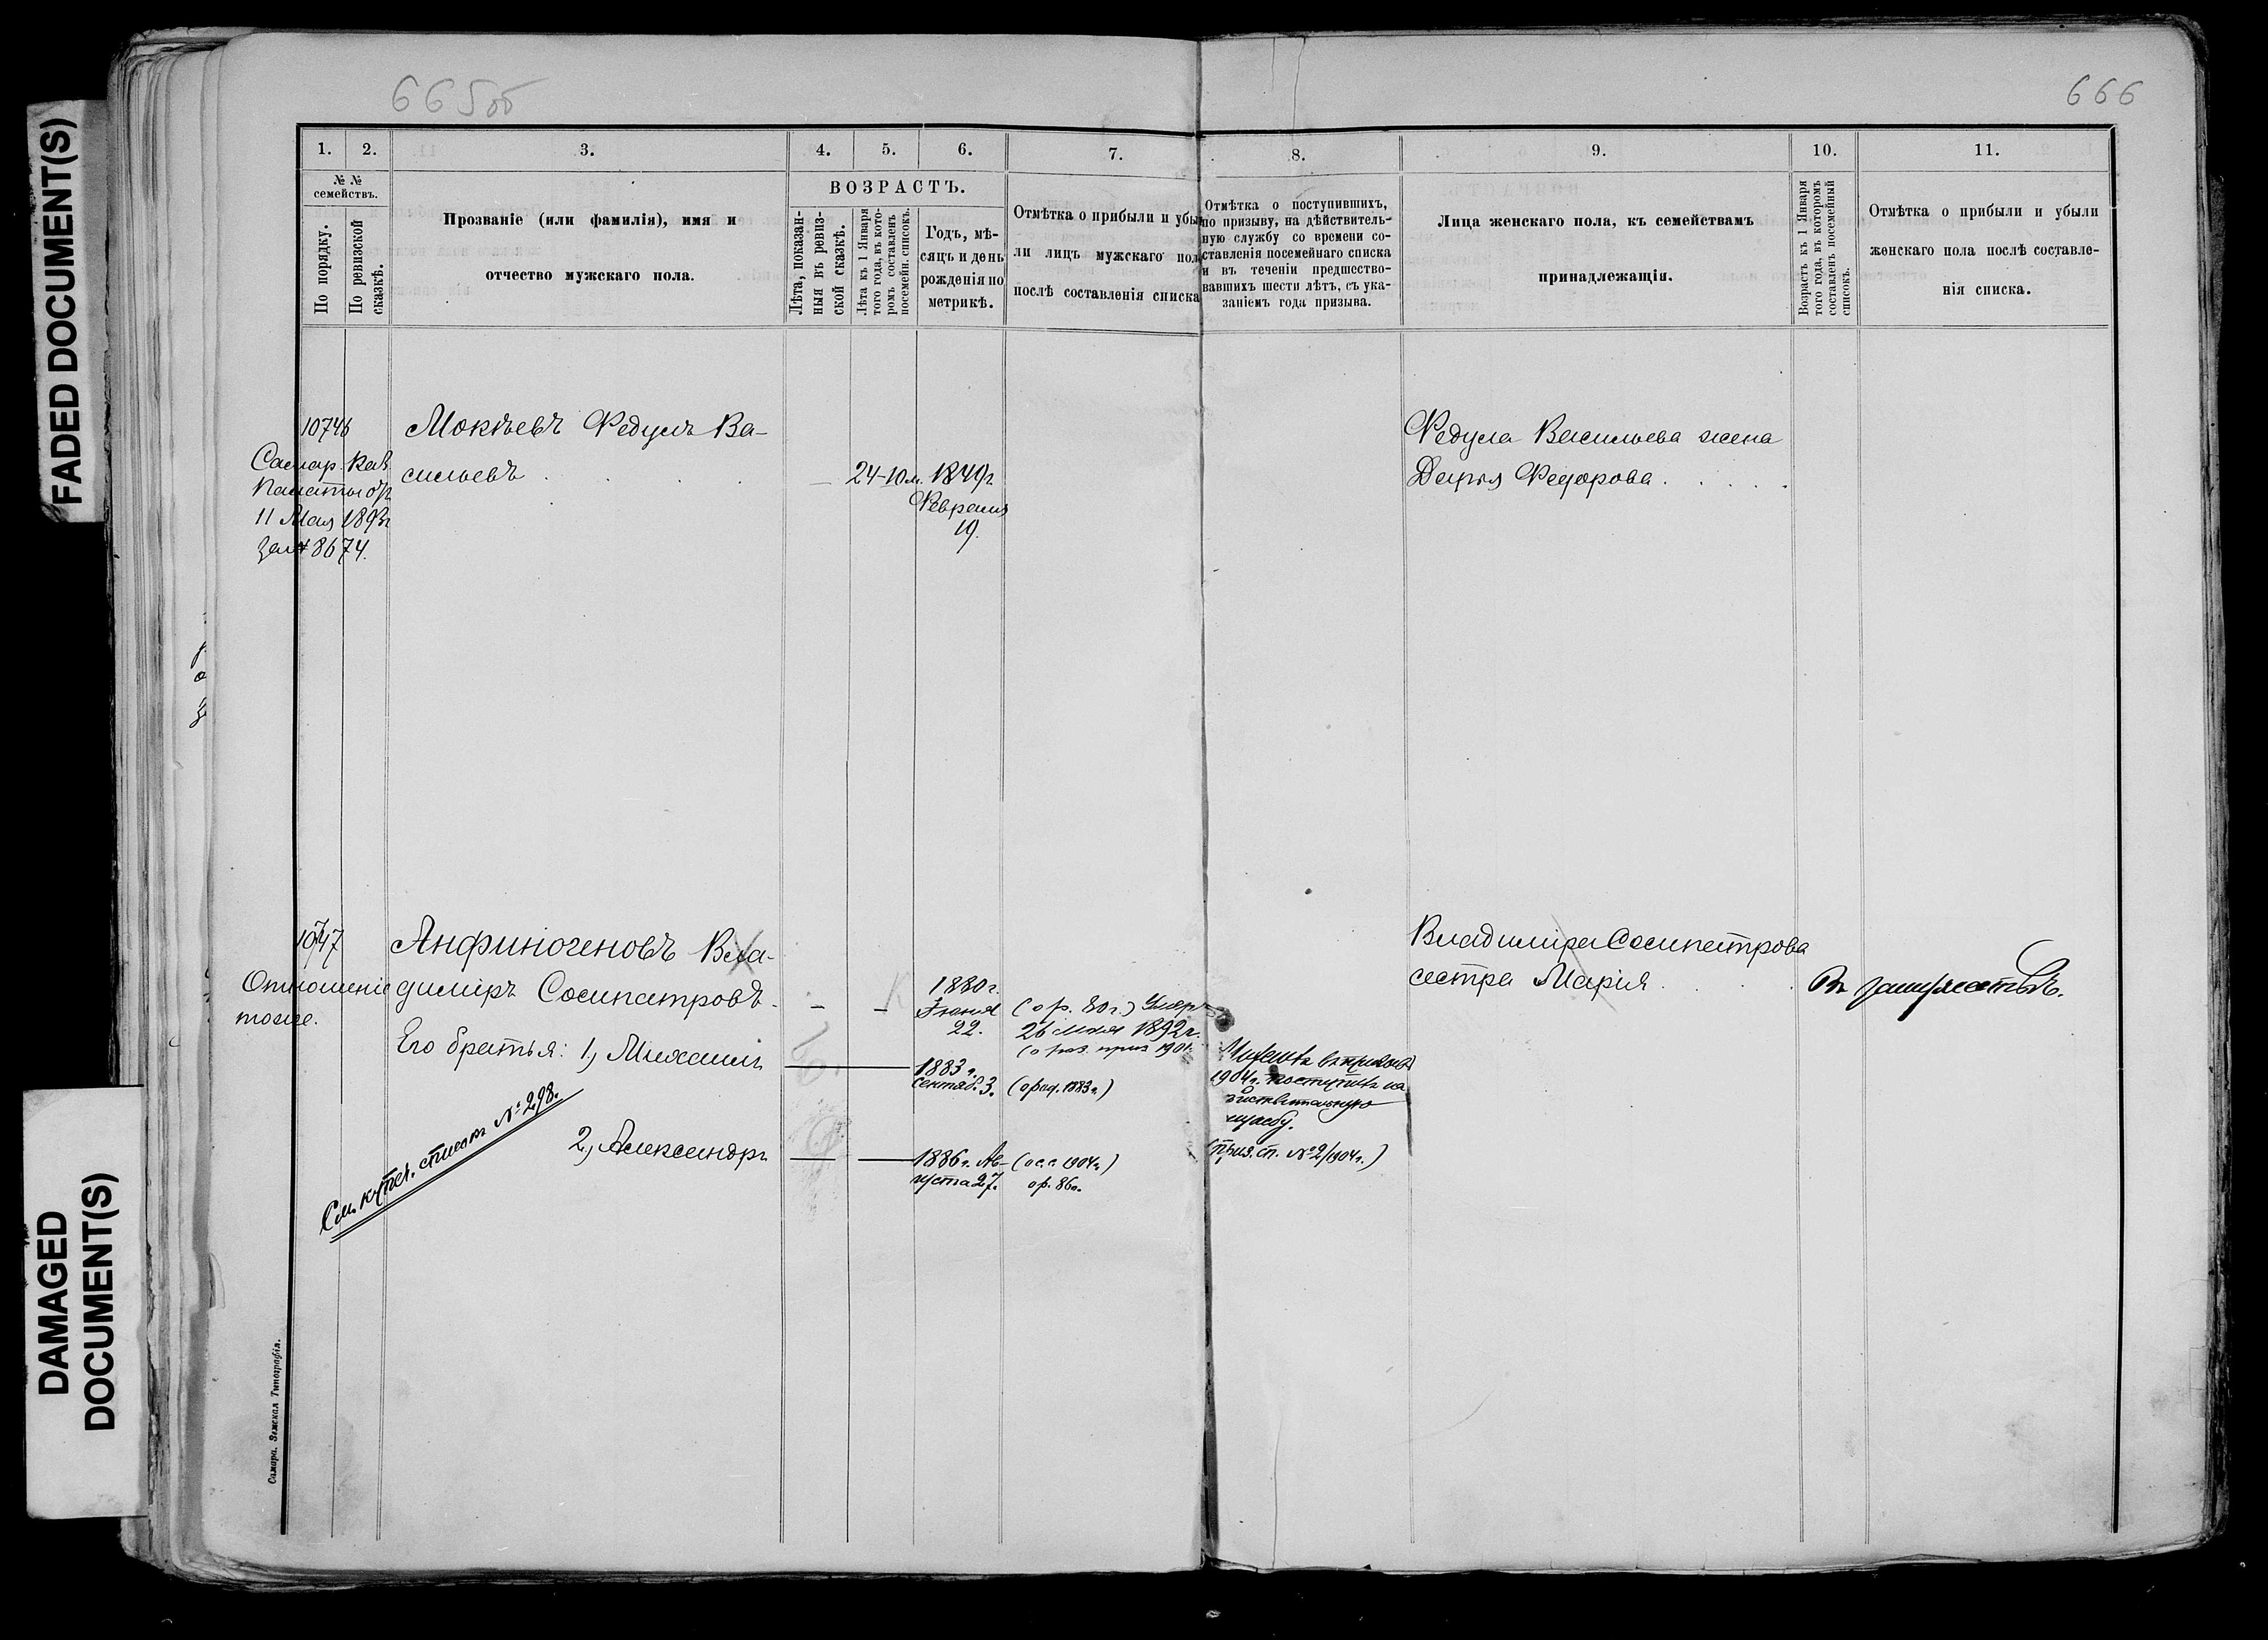 FADED DOCUMENT(S)
DAMAGED
DOCUMENT(S)
665об
666
1.
2.
3.
4.
5.
6.
7.
8.
9.
10.
11.
№ №
семействъ.
По порядку.
По ревизской
сказкѣ.
Прозваніе (или фамилія), имя и
отчество мужскаго пола.
ВОЗРАСТЪ.
Лѣта, показан-
ныя въ ревиз-
ской сказкѣ.
Лѣта къ 1 Января
того года, въ кото-
ромъ составленъ
посемейн. списокъ.
Годъ, мѣ-
сяцъ и день
рожденія по
метрикѣ.
Отмѣтка о прибыли и убы-
ли лицъ мужскаго пола
послѣ составленія списка
Отмѣтка о поступившихъ,
по призыву, на дѣйствитель-
ную службу со времени со-
ставленія посемейнаго списка
и въ теченіи предшество-
вавшихъ шести лѣтъ, съ ука-
заніемъ года призыва.
Лица женскаго пола, къ семействамъ
принадлежащія.
Возрастъ къ 1 Января
того года, въ которомъ
составленъ посемейный
списокъ.
Отмѣтка о прибыли и убыли
женскаго пола послѣ составле-
нія списка.
10746
Самар. Каз.
Палаты отъ
11 Мая 1893г
за № 8674.
Мокѣевъ Федулъ Ва-
сильевъ
24-10м.
1849г
Февраля
19.
Федула Васильева жена
Дарья Федорова.
10747
Отношеніе
тоже.
Анфиногеновъ Вла-
диміръ Сосипатровъ.
Его братья: 1, Михаилъ
2, Александръ
См. купеч. списокъ № 298.
1880г.
Іюня
22.
(о р. 80 г.) Умеръ
26 мая 1892г.
1883 г.
Сентяб. 3.
(о рад. 1883 г.)
1886 г. Ав-
густа 27.
(о с. с 1904 г.)
о р. 86 г.
Михаилъ въ призывъ
1904 г. поступилъ на
дѣйствительную
службу.
(приз. сп. № 2/1904 г.)
Владиміра Сосипатрова
сестра Марія
Въ замужествѣ.
Самара. Земская Типографія.